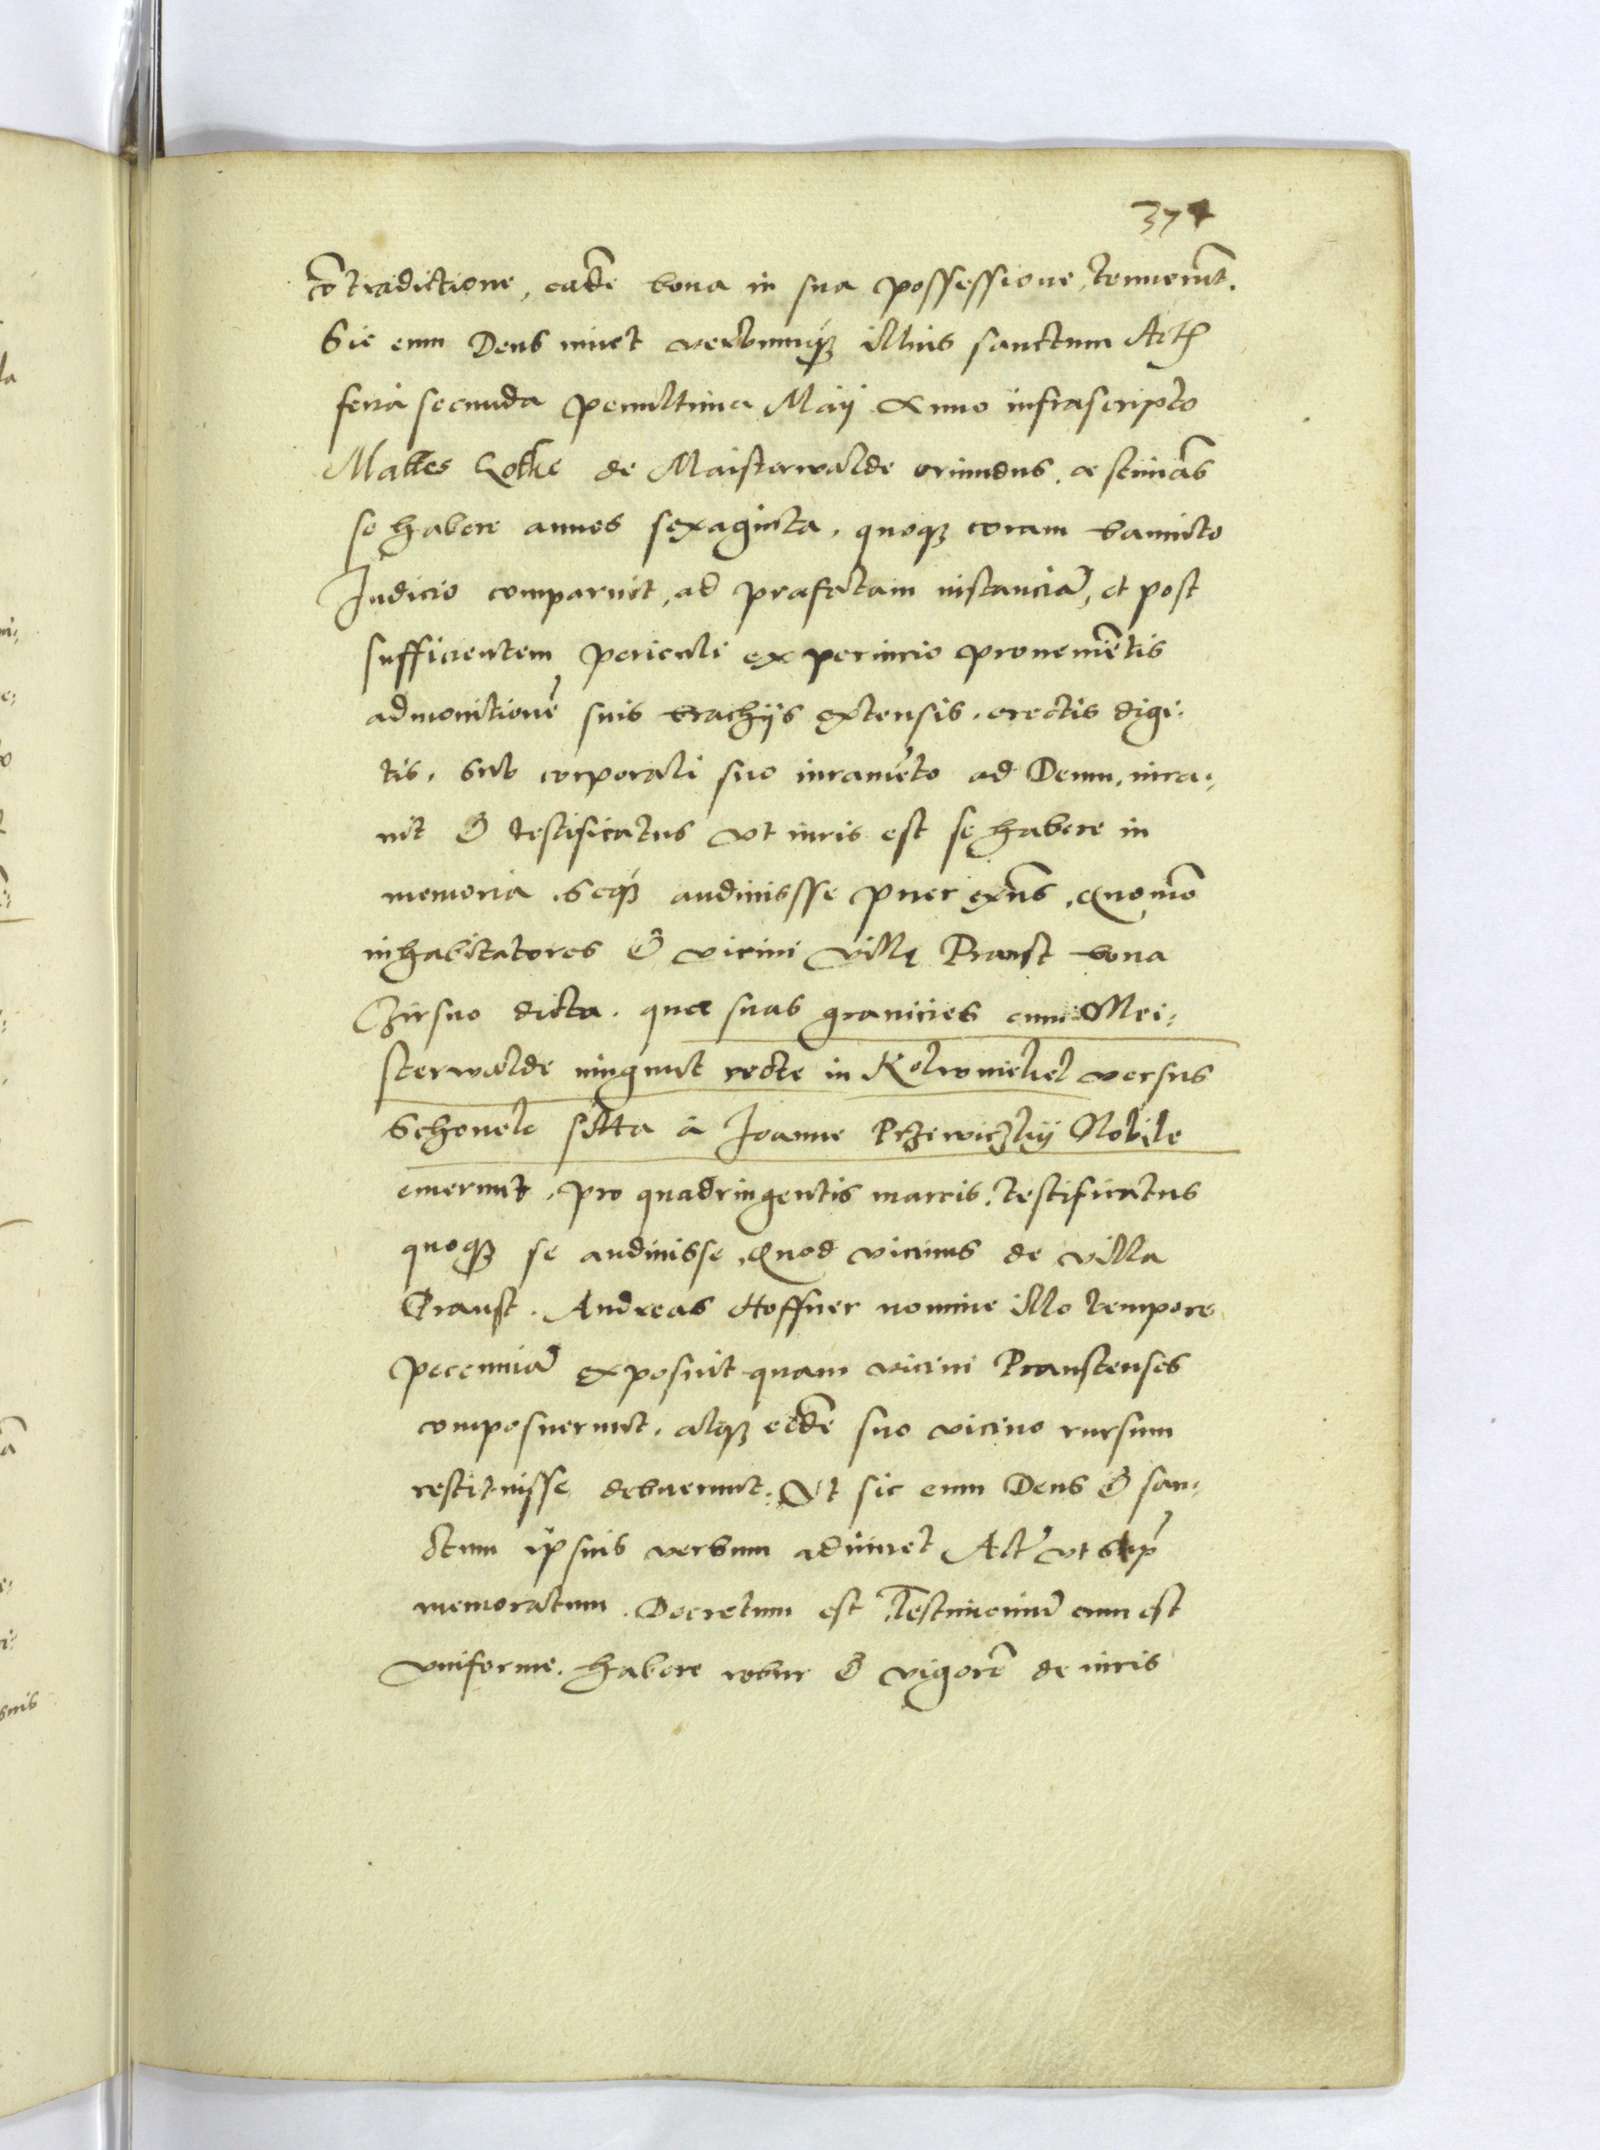 374
cōtradictione, eadē bona in sua possessione tenuerūt.
Sic eum Deus iuuet verbumqꝫ illius sanctum Act
feria secunda penultima Maij Anno infrascripto
Mattes Lothe de Maisterwalde oriundus, aestimās
se habere annos sexaginta, quoqꝫ coram bannito
Iudicio comparuit, ad praefatam instanciā, et post
sufficientem periculi ex periurio proueniētis
admonitionē suis brachijs extensis, erectis digi-
tis, sub corporali suo iuramēto ad Deum, iura-
uit & testificatus vt iuris est se habere in
memoria, Seqꝫ audiuisse puer exñs, Quomō
inhabitatores & vicini villę Praust bona
dicta, quae suas granicies cum Mei-
sterwalde iungunt recte in versus
Schonele sitta à Ioanne Nobile
emerunt, pro quadringentis marcis, testificatus
quoqꝫ se audiuisse, Quod vicinus de villa
Praust, Andreas Hoffner nomine illo tempore
pecunniā exposuit quam vicini Praustenses
composuerunt, atqꝫ eidē suo vicino rursum
restituisse debuerunt, Vt sic eum Deus & san-
ctum ipsius verbum adiuuet Act vt sup
memoratum, Decretum est Testimoniū cum est
vniforme, habere robur & vigorē de iuris
suis